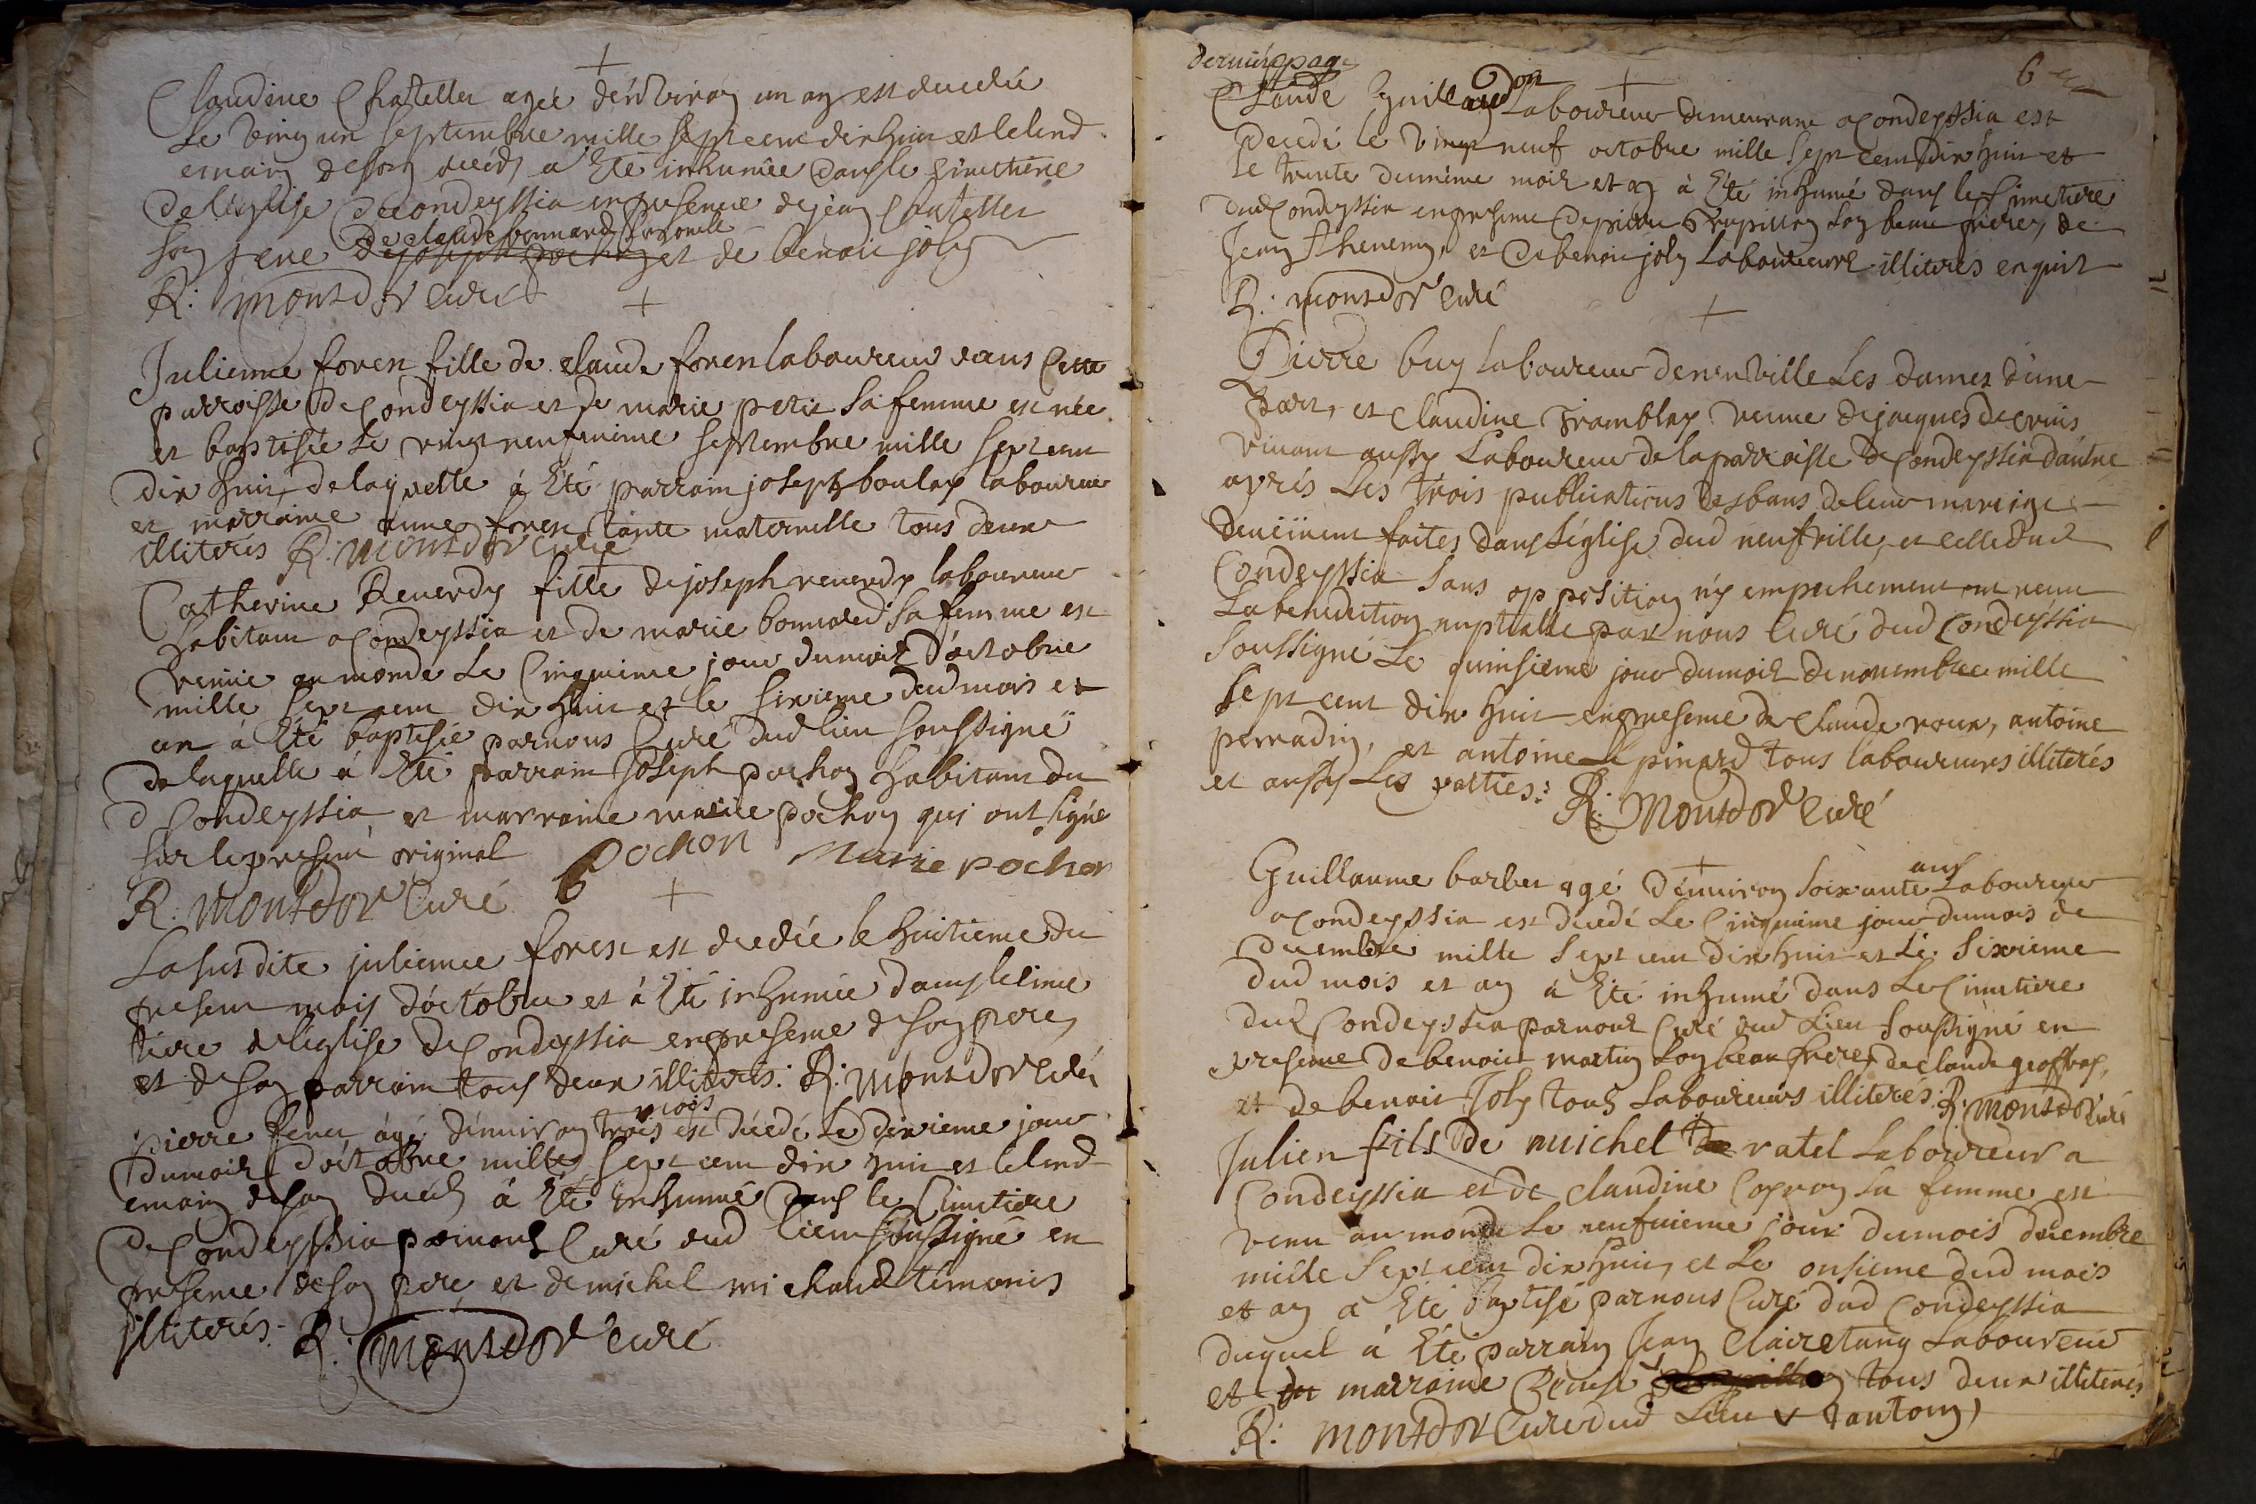 Claudine Chatellet agée d'environ un an est decedée
le vingt un septembre mille sept cent dix huit et le lend
emain de son decéds a Eté inhumée dans le cimetiere
de l'eglise de condeyssia en presence de jean Chatellet
son pere de claude bonnard et de benoit joly
R: montdor curé
Julienne forest fille de claude forest laboureur dans Cette
parroisse de Condeyssia et de marie petit sa femme est née
et baptisée le vingt neufvieme septembre mille sept cent
dix huit, de laquelle à Eté parrain joseph boulay laboureur
et marraine anne forest tante maternelle tous deux
illiterés R: montdor curé
Catherine Reverdy fille de joseph reverdy laboureur
habitant a Condeyssia et de marie bonnard sa femme est
venue au monde le Cinquieme jour du mois d'octobre
mille sept cent dix huit et le sixieme dud mois et
an à Eté baptisée par nous Curé dud lieu soussigné
de laquelle à Eté parrain Joseph pochon habitant du
d Condeyssia et marraine marie pochon qui ont signé
sur le present original Pochon Marie pochon
R: montdor Curé
La susdite julienne forest est decedée le huitieme du
present mois d'octobre et à Eté inhumée dans le cime
tiere de l'eglise de Condeyssia en presence de son pere,
et de son parrain tous deux illiterés: R: montdor Curé
pierre agé d'environ trois mois est decedé le dixieme jour
du mois d'octobre mille sept cent dix huit et le lend
emain de son decéds à Eté inhumé dans le Cimetiere
de Condeyssia par nous Curé dud lieu soussigné en
presence de son pere et de michel michaud témoins
illiterés. R: montdor curé
derniére page 6
Claude laboureur demeurant a Condeyssia est
decedé le vingt neuf octobre mille sept cent dix huit et
le trente du même mois et an à Eté inhumé dans le Cimetiere
dud Condeyssia en presence de pierre son beau frere, de
Jean et de benoit joly laboureurs illiterés enquis
R: montdor curé
Pierre buy laboureur de neuville Les dames d'une
part, et Claudine Tramblay veuve de jacques
vivant aussy Laboureur de la parroisse de Condeyssia d'autre
aprés Les trois publications des bans de leur mariage
deuëment faites dans l'église dud neufville, et celle dud
Condeyssia sans opposition n'y empechement ont receu
La benediction nuptialle par nous Curé dud Condeyssia
soussigné Le quinsieme jour du mois de novembre mille
sept cent dix huit en presence de Claude roux, antoine
perradin, et antoine pinard tous laboureurs illiterés
et aussy Les parties: R: Montdor Curé
Guillaume barbet agé d'environ soixante ans Laboureur
a Condeyssia est decedé Le Cinquieme jour du mois de
decembre mille sept cent dix huit et Le sixieme
dud mois et an à Eté inhumé dans Le Cimetiere
dud Condeyssia par nous Curé dud Lieu soussigné en
presence de benoit martin son beau frere, de claude geoffray,
et de benoit Joly tous Laboureurs illiterés: R: montdor curé
Julien fils de michel ratel Laboureur a
Condeyssia et de Claudine Copron sa femme est
venu au monde Le neufvieme jour du mois decembre
mille sept cent dix huit, et Le onsieme dud mois
et an à Eté baptisé par nous Curé dud Condeyssia
duquel à Eté parrain Jean Clairetang Laboureur
et marraine tous deux illiterés
R: montdor Curé dud Lieu